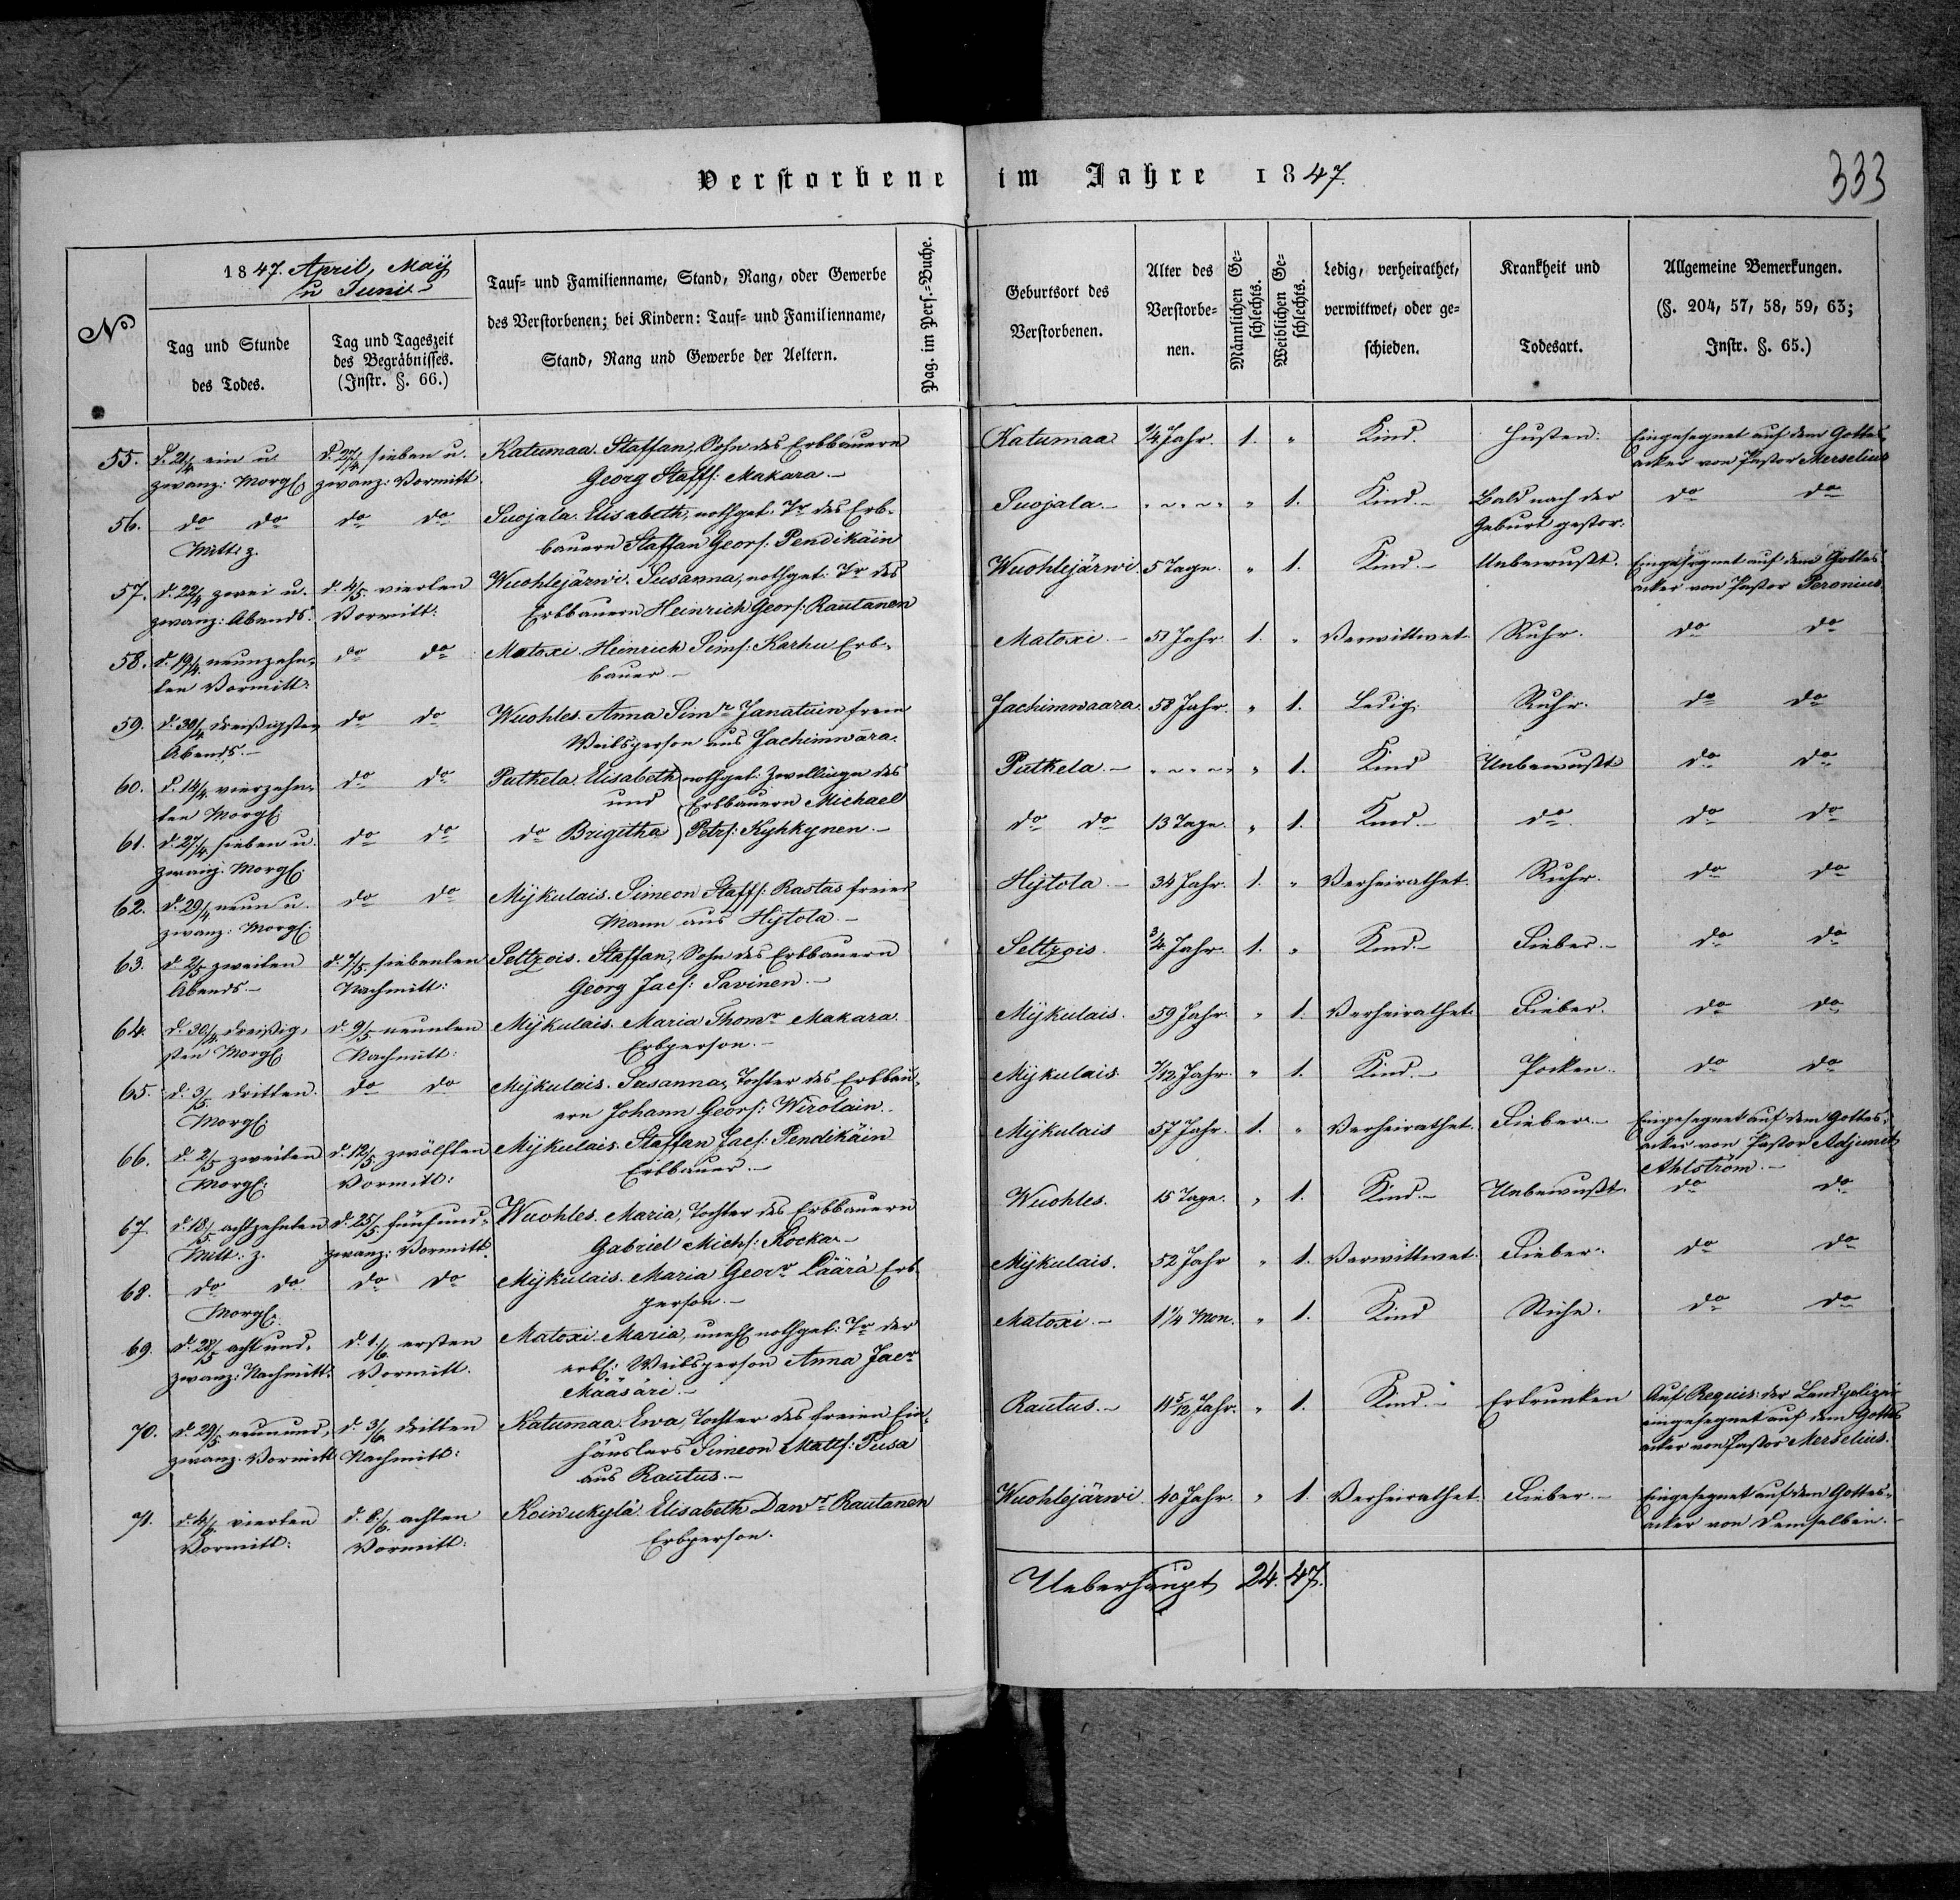 Verstorbene im Jahre 1847.
333
No
1847. April, Maÿ
u Juni.
Tag und Stunde
des Todes.
Tag und Tageszeit
des Begräbnisses.
(Instr. §. 66.)
Tauf- und Familienname, Stand, Rang, oder Gewerbe
des Verstorbenen; bei Kindern: Tauf- und Familienname,
Stand, Rang und Gewerbe der Aeltern.
Pag. im Pers.-Buche.
Geburtsort des
Verstorbenen.
Alter des
Verstorbe-
nen.
Männlichen Ge-
schlechts.
Weiblichen Ge-
schlechts.
Ledig, verheirathet,
verwittwet, oder ge-
schieden.
Krankheit und
Todesart.
Allgemeine Bemerkungen.
(§. 204, 57, 58, 59, 63;
Instr. §. 65.)
55. d. 21/4 ein u. d. 27/4 sieben u. Katumaa. Staffan, Sohn des Erbbauern Katumaa Jahr. 1. " Kind. Husten. Eingesegnet auf dem Gottes-
zwanz: Morg. zwanz: Vormitt. Georg Staffs: Makara.- acker von Pastor Merselius
56. do do do do Suojala. Elisabeth, nothget. Tr. des Erb- Suojala.- " 1. Kind.- Bald nach der do do
Mitt: z. bauern Staffan Geors: Pendikäin Geburt gestor:
57. d. 22/4 zwei u. d. 4/5. vierten Wuohlejärwi. Susanna, nothget: Tr des Wuohlejärwi. 5 Tage. " 1. Kind.- Unbewußt. Eingesegnet auf dem Gottes-
zwanz: Abends. Vormitt: Erbbauern Heinrich Geors: Rautanen acker von Pastor Peronius.
58. d. 19/4. neunzehn- do do Matoxi. Heinrich Sims: Karhu Erb- Matoxi.- 51 Jahr. 1. " Verwittwet. Ruhr. do do
ten Vormitt: bauer.-
59. d. 30/4. dreißigsten do do Wuohles. Anna Simr Janatuin freie Jachimwaara. 58 Jahr. " 1. Ledig. Ruhr. do do
Abends.- Weibsperson aus Jachimwāra.
60. d. 14/4. vierzehn- do do Putkela. Elisabeth nothget: Zwillinge des Putkela.- " 1. Kind Unbewußt do do
ten Morg. und Erbbauern Michael
61. d. 27/4. sieben u. do do do Brigitha Petrs: Kyhkynen.- do do 13 Tage. " 1. Kind.- do do do
zwanz. Morg.
62. d. 29/4 neun u. do do Mÿkulais. Simeon Staffs: Rastas freier Hÿtola.- 34 Jahr. 1. " Verheirathet. Ruhr. do do
zwanz: Morg. Mann aus Hÿtola.-
63. d. 2/5 zweiten d. 7/5. siebenten Seltzois. Staffan, Sohn des Erbbauern Seltzois. 3/4. Jahr. 1. " Kind.- Fieber.- do do
Abends.- Nachmitt: Georg Jacs: Savinen.-
64. d. 30/4. dreißig- d. 9/5. neunten Mÿkulais. Maria Thomr Makara Mÿkulais. 59 Jahr. " 1. Verheirathet. Fieber. do do
sten Morg. Nachmitt: Erbperson.-
65. d. 3/5 dritten. do do Mÿkulais. Susanna, Tochter des Erbbau- Mÿkulais. 7/12 Jahr. " 1. Kind.- Pocken.- do do
Morg. ern Johann Geors: Wirolain.
66. d. 2/5 zweiten d. 12/5 zwölften Mÿkulais. Staffan Jacs: Pendikäin Mÿkulais 57 Jahr. 1. " Verheirathet. Fieber.- Eingesegnet auf dem Gottes-
Morg. Vormitt: Erbbauer.- acker von Pastor Adjunct
Ahlström.-
67. d. 18/5 achtzehnten d. 25/5. fünfund- Wuohles. Maria, Tochter des Erbbauern Wuohles. 15 Tage. " 1. Kind.- Unbewußt. do do
Mitt: z. zwanz: Vormitt. Gabriel Michs: Rocka.-
68. do do do do Mÿkulais. Maria Georr Läärä Erb- Mÿkulais. 52 Jahr " 1. Verwittwet. Fieber. do do
Morg. person.-
69. d. 28/5 achtund- d. 1./6. ersten Matoxi. Maria, unehl nothget: Tr der Matoxi.- 1 1/4 Mon. " 1. Kind do do
zwanz: Nachmitt: Vormitt. erbl: Weibsperson Anna Jacr
Määsäri.-
70. d. 29/5. neunund- d. 3/6. dritten Katumaa. Ewa, Tochter des freien Ein- Rautus.- 11 5/12 Jahr. " 1. Kind.- Ertrunken Auf Requis: der Landpolizei
zwanz. Vormitt Nachmitt: häuslers Simeon Matts: Pusa eingesegnet auf dem Gottes
aus Rautus.- acker von Pastor Merselius.
71. d. 4/6 vierten d. 8./6. achten Koiwukylä. Elisabeth Danr Rautanen Wuohlejärwi. 40 Jahr. " 1. Verheirathet. Fieber.- Eingesegnet auf dem Gottes-
Vormitt: Vormitt: Erbperson. acker von demselben.-
Ueberhaupt 24. 47.